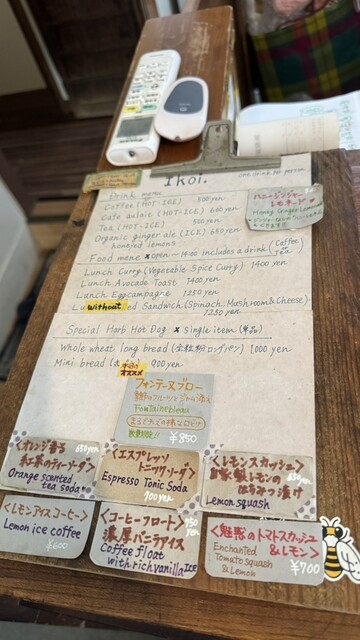 Ikoi.
one drink per person.
Drink
Coffee (HOT・ICE) 500 yen
Cafe aulait (HOT・ICE) 600 yen
Tea (HOT・ICE) 500 yen
Organic ginger ale (ICE) 650 yen
honeyed lemons
ハニージンジャー
レモネード
Honey Ginger Lemonade
Food menue × open~14:00 includes a drink (Coffee or Tea)
Lunch Curry (Vegetable Spice Curry) 1400 yen
Lunch Avocado Toast 1400 yen
Lunch Eggcampagne 1250 yen
without ed Sandwich (Spinach, Mushroom & Cheese)
1250 yen
Special Harb Hot Dog × Single item (単品)
Whole wheat long bread (全粒粉ロングパン) 1000 yen
Mini bread 900 yen
本日の
オススメ
フォンテーヌブロー
Fontainebleau
数量限定!!
¥850
<オレンジ香る 650yen
紅茶のティーソーダ>
Orange scented
tea soda
<エスプレッソ
トニックソーダ>
Espresso Tonic Soda
700 yen
<レモンスカッシュ>
650yen
自家製レモンの
はちみつ漬け
Lemon squash
<レモンアイスコーヒー>
Lemon ice coffee
¥600
<コーヒーフロート> 750 yen
濃厚バニラアイス
Coffee float
with rich vanilla ICE
<魅惑のトマトスカッシュ
&レモン>
Enchanted
Tomato squash
& Lemon
¥700